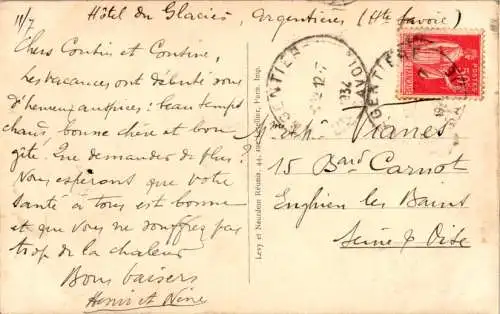 11/7 Hôtel du Glacier, Argentières (Hte Savoie)
Chers Cousin et Cousine,
Les vacances ont débuté sous
d'heureux auspices : beau temps
chaud, bonne chère et bon
gîte. Que demander de plus ?
Nous espérons que votre
santé à tous est bonne
et que vous ne souffrez pas
trop de la chaleur
Bons baisers
Henri et Nine
Levy et Neurdein Réunis, 44, rue Letellier, Paris. Imp.
ARGENTIÈRE
12-7
1934
POSTES
50c
M. et Me Vianès
15 Bard Carnot
Enghien les Bains
Seine & Oise